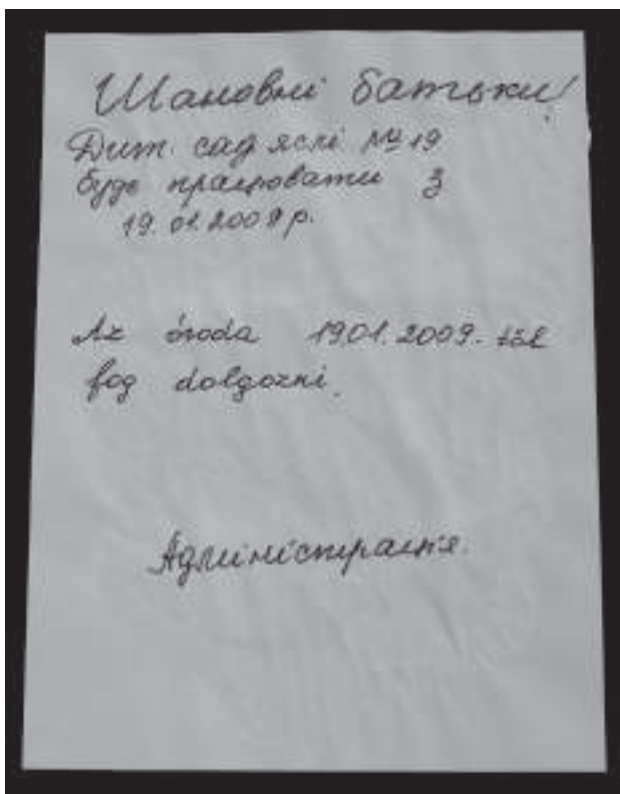 Шановні батьки!
Дит. сад яслі № 19
буде працювати з
19.01.2009р.
Az óvoda 1901.2009-től
fog dolgozni.
Адміністрація.